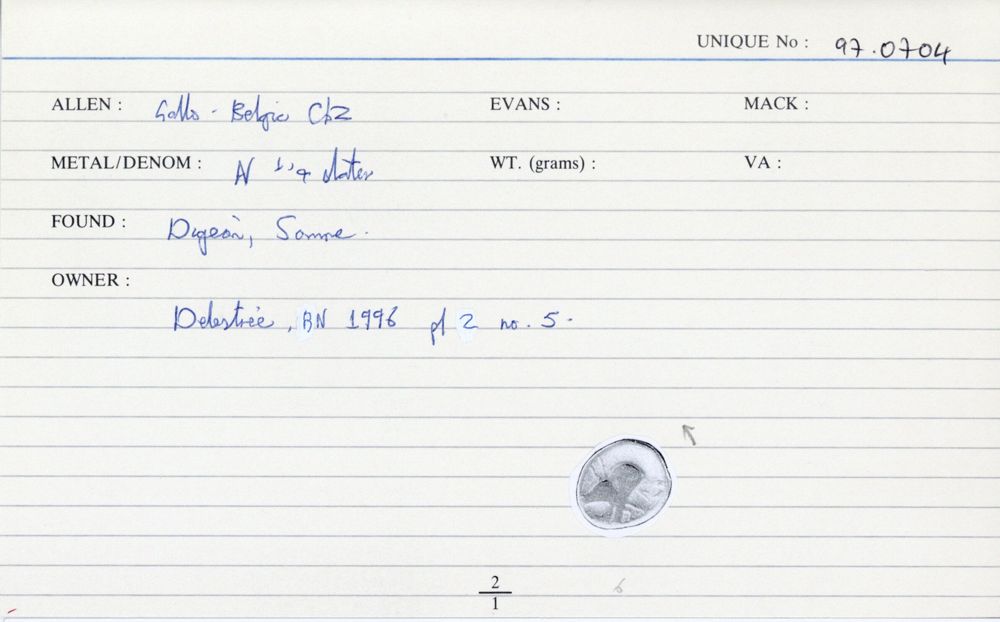 UNIQUE No : 97.0704
ALLEN : Gallo-Belgic Cb2 EVANS : MACK :
METAL/DENOM : N 1/4 stater WT. (grams) : VA :
FOUND : Digeon, Somme.
OWNER :
Delestrée, BN 1996 pl 2 no. 5.
2
1
6